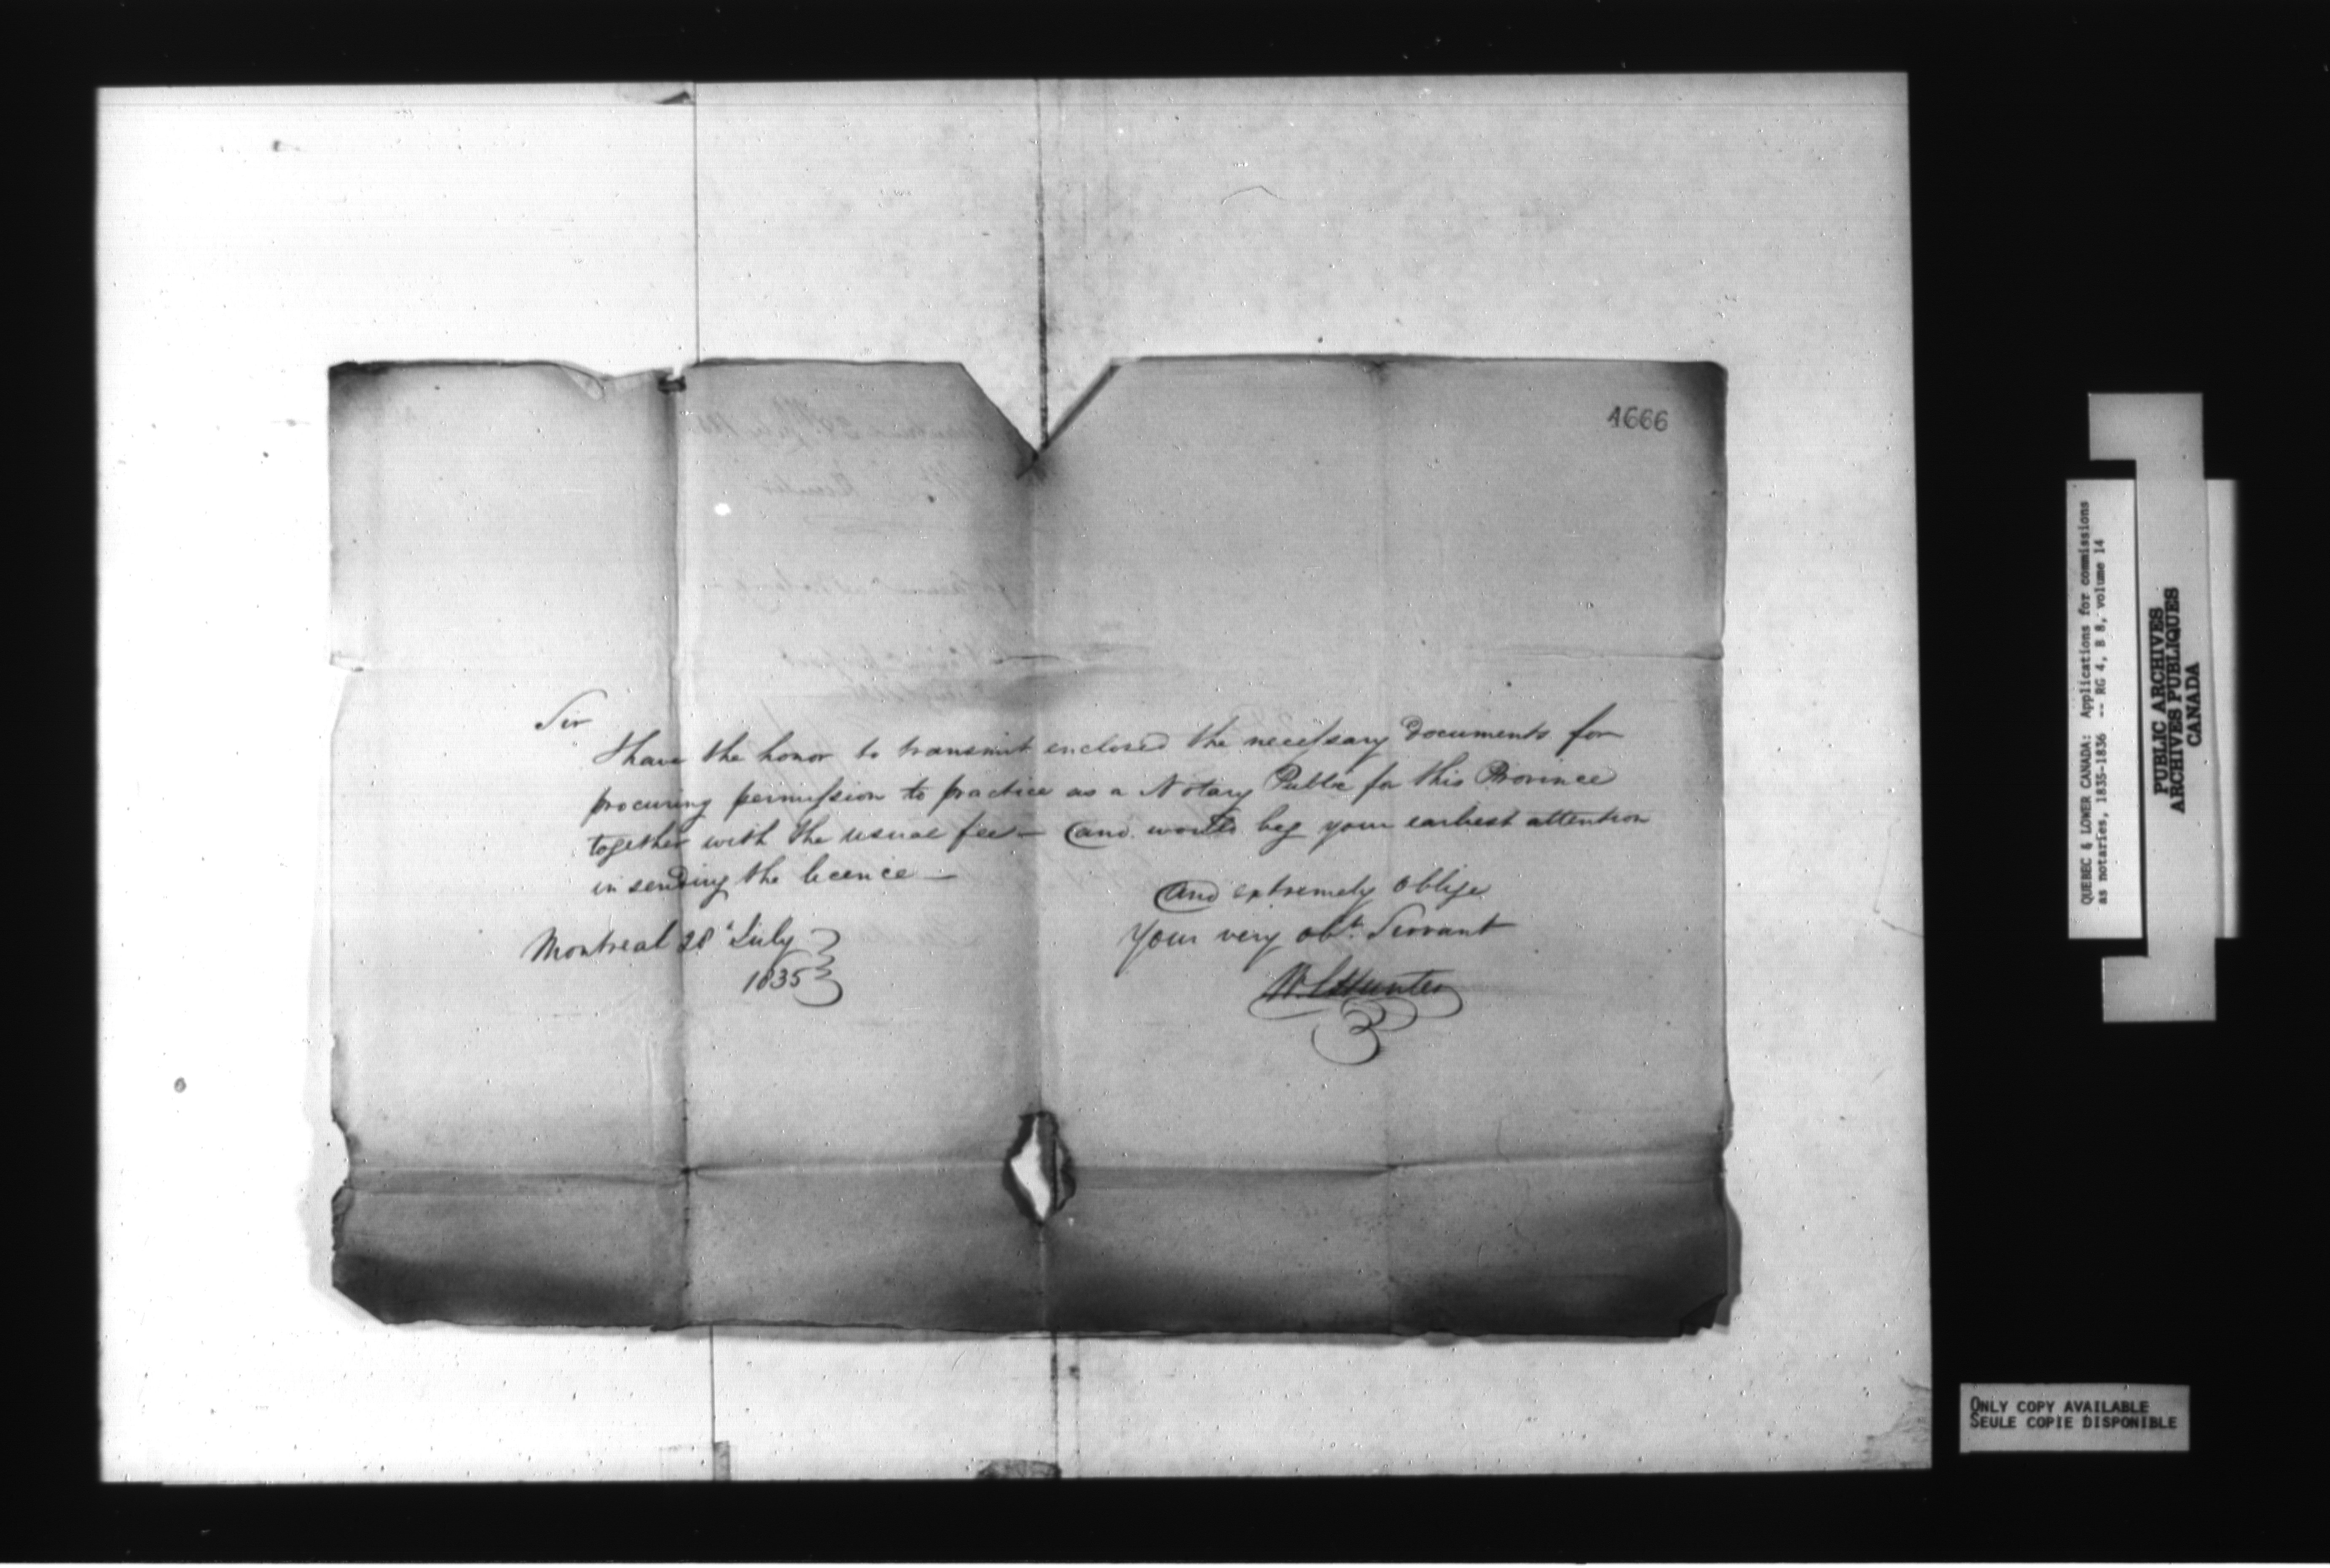 4666
Sir
I have the honor to transmit enclosed the necessary Documents for
procuring permission to practice as a Notary Public for this Province
together with the usual fee — and would beg your earliest attention
in sending the licence —
And extremely oblige
Your very obt. Servant
Montreal 28 July
1835
Hunter
QUEBEC & LOWER CANADA: Applications for commissions
as notaries, 1835-1836 -- RG 4, B 8, volume 14
PUBLIC ARCHIVES
ARCHIVES PUBLIQUES
CANADA
ONLY COPY AVAILABLE
SEULE COPIE DISPONIBLE